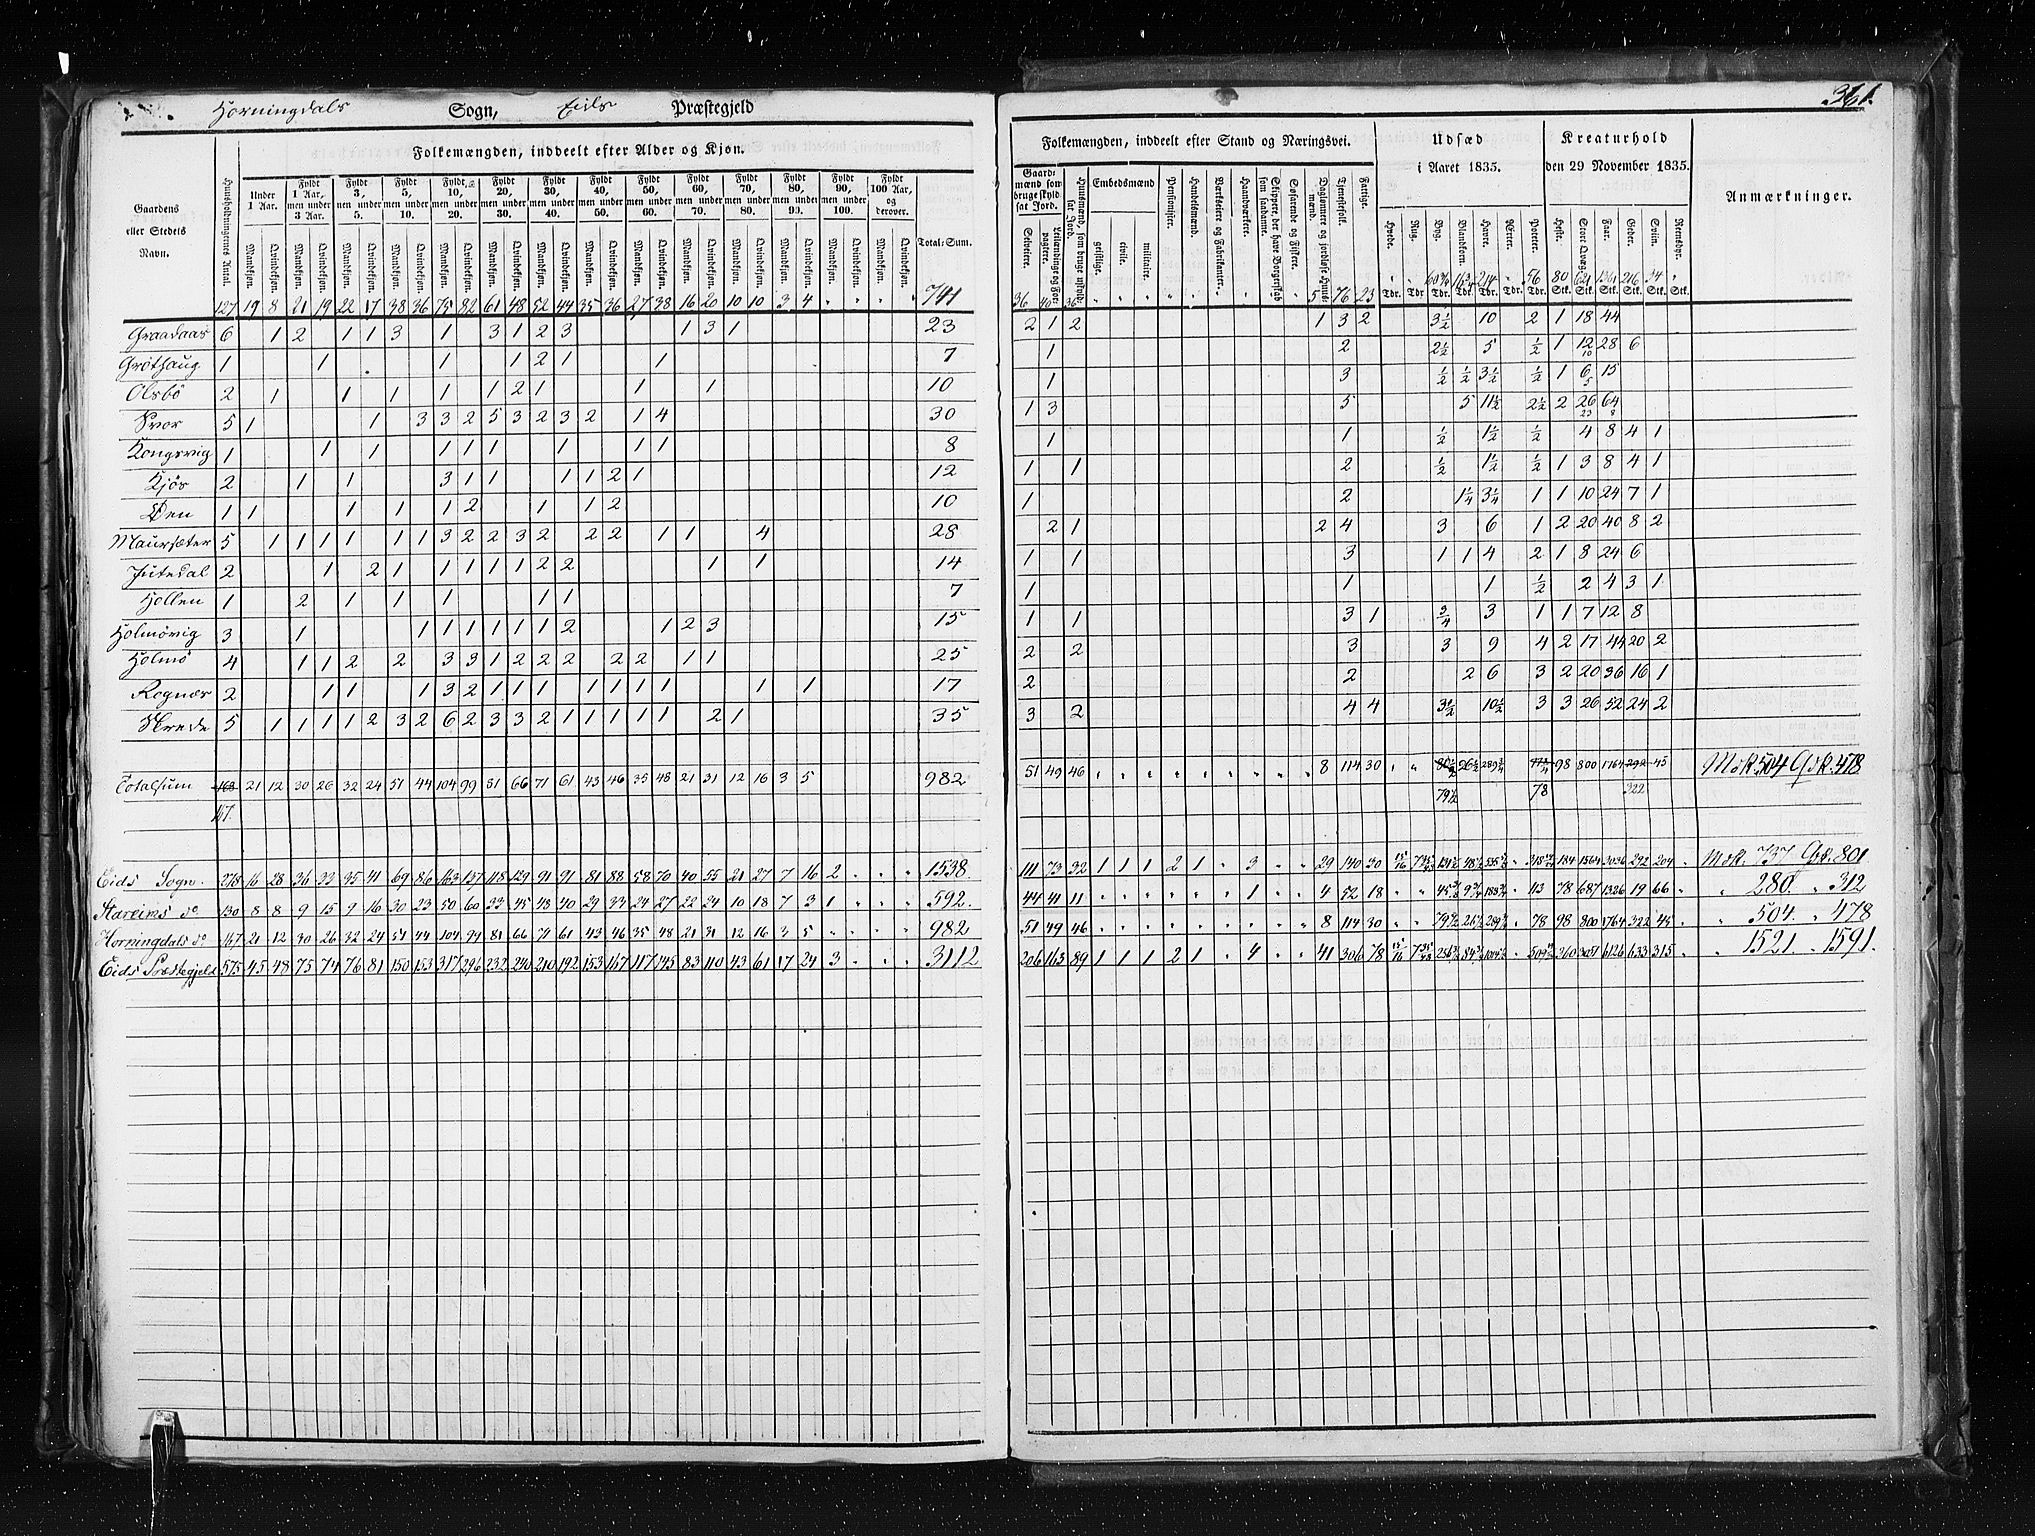 361.
Horningdals Sogn, Eids Præstegjeld
Folkemængden, inddeelt efter Alder og Kjøn.
Folkemængden, inddeelt efter Stand og Næringsvei.
Udsæd i Aaret 1835.
Kreaturhold den 29 November 1835.
Anmærkninger.
Gaardens eller Stedets Navn.
Huusholdningernes Antal.
Under 1 Aar.
Fyldt 1 Aar, men under 3 Aar.
Fyldt 3, men under 5.
Fyldt 5, men under 10.
Fyldt 10, men under 20.
Fyldt 20, men under 30.
Fyldt 30, men under 40.
Fyldt 40, men under 50.
Fyldt 50, men under 60.
Fyldt 60, men under 70.
Fyldt 70, men under 80.
Fyldt 80, men under 90.
Fyldt 90, men under 100.
Fyldt 100 Aar, og derover.
Mandkjøn. Qvindekjøn.
Total-Sum.
Gaardmænd som bruge skyldsat Jord.
Selveiere.
Leilændinge og Forpagtere.
Huusmænd, som bruge uskyldsat Jord.
Embedsmænd
geistlige. civile. militaire.
Pensionister.
Handelsmænd.
Værkseiere og Fabrikanter.
Handværkere.
Skippere, der have Borgerskab som saadanne.
Søfarende og Fiskere.
Daglønnere og jordløse Huusmænd.
Tjenestefolk.
Fattige.
Hvede. Rug. Byg. Blandkorn. Havre. Erter. Poteter.
Heste. Stort Qvæg. Faar. Geder. Sviin. Rensdyr.
127 19 8 21 19 22 17 38 36 75 82 61 48 52 44 35 36 27 38 16 20 10 10 3 4 " " " " 741
36 40 36 5 76 23
Graadaas 6 1 2 1 1 3 1 3 1 2 3 1 3 1 23 2 1 2 1 3 2 3½ 10 2 1 18 44
Grøthaug 1 1 1 1 2 1 1 7 1 2 2½ 5 ½ 1 12 28 6
Olsbø 2 1 1 1 1 1 2 1 1 1 10 1 3 ½ ½ 3½ ½ 1 6 15
Svor 5 1 1 3 3 2 5 3 2 3 2 1 4 30 1 3 5 5 11½ 2½ 2 26 64
Kongsvig 1 1 1 1 1 1 1 1 1 8 1 1 ½ 1½ ½ 4 8 4 1
Kjøs 2 1 1 3 1 1 1 1 2 1 12 1 1 2 ½ 1½ ½ 1 3 8 4 1
Øen 1 1 1 1 1 2 1 1 2 10 1 2 1¼ 3¼ 1 1 10 24 7 1
Maursæter 5 1 1 1 1 1 1 1 3 2 2 3 2 2 2 1 1 4 28 2 1 2 4 3 6 1 2 20 40 8 2
Jutedal 2 1 2 1 1 1 1 1 2 2 1 1 14 1 1 3 1 1 4 2 1 8 24 6
Hollen 1 2 1 1 1 1 1 7 1 1 1 ½ 2 4 3 1
Holmøvig 3 1 1 1 1 1 1 1 2 1 2 3 15 1 1 3 1 ¾ 3 1 1 7 12 8
Holmø 4 1 1 2 2 3 3 1 2 2 2 2 2 1 1 25 2 2 3 3 9 4 2 17 44 20 2
Rognæs 2 1 1 1 3 2 1 1 1 1 1 1 1 1 1 17 2 2 2 6 3 2 20 36 16 1
Skrede 5 1 1 1 1 2 3 2 6 2 3 3 2 1 1 1 1 1 2 1 35 3 2 4 4 3½ 10½ 3 3 26 52 24 2
Totalsum 168 21 12 30 26 32 24 51 44 104 99 81 66 71 61 43 46 35 48 21 31 12 16 3 5 982 51 49 46 " " " " " " " " " " 8 114 30 " " 80½ 26½ 289¾ 98 800 1764 292 45 Mdk. 504 Qdk. 478
167. 79½ 78 322
Eids Sogn. 278 16 28 36 33 35 41 69 86 163 137 118 129 91 91 81 88 58 70 40 55 21 27 7 16 2 " " " 1538. 111 73 32 1 1 1 2 1 " 3 " " 29 140 30 184 1564 3036 292 204 " Mdk. 737 Qdk. 801
Stareims do 130 8 8 9 15 9 16 30 23 50 60 33 45 48 40 29 33 24 27 22 24 10 18 7 3 1 " " " 592. 44 41 11 " " " " " " 1 " " 4 52 18 113 78 687 1326 19 66 " " 280. " 312
Horningdals do 167 21 12 30 26 32 24 51 44 104 99 81 66 71 61 43 46 35 48 21 31 12 16 3 5 " " " " 982 51 49 46 " " " " " " " " " 8 114 30 " " 79½ 26½ 289¾ " 78 98 800 1764 322 45 " " 504. " 478
Eids Præstegjeld 575 45 48 75 74 76 81 150 153 317 296 232 240 210 192 153 167 117 145 83 110 43 61 17 24 3 " " " 3112 206 163 89 1 1 1 2 1 " 4 " " 41 306 78 360 3051 6126 633 315 " " 1521. " 1591.